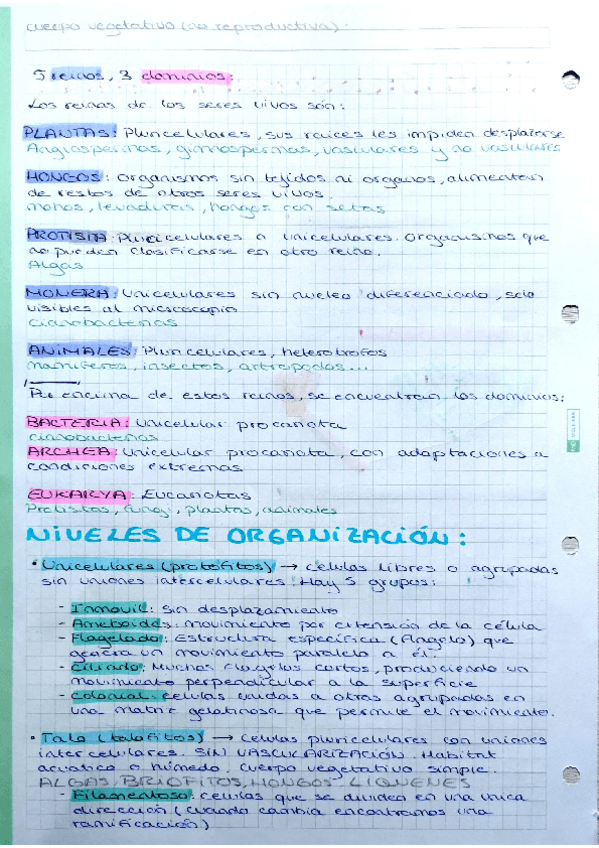 cuerpo vegetativo (no reproductiva).
5 reinos, 3 dominios:
Los reinos de los seres vivos son:
PLANTAS: Pluricelulares, sus raices les impiden desplazarse
Angiospermas, gimnospermas, vasculares y no vasculares
HONGOS: organismos sin tejidos ni organos, alimentan
de restos de otros seres vivos.
mohos, levaduras, hongos con setas
PROTISTA: Pluricelulares o unicelulares. Organismos que
no pueden clasificarse en otro reino.
Algas
MONERA: Unicelulares sin nucleo diferenciado, solo
visibles al microscopio
cianobacterias
ANIMALES: Pluricelulares, heterotrofos
mamiferos, insectos, artropodos...
Por encima de estos reinos, se encuentran los dominios:
BACTERIA: Unicelular procariota
cianobacterias
ARCHEA: Unicelular procariota, con adaptaciones a
condiciones extremas
EUKARYA: Eucariotas
Protistas, fungi, plantas, animales
NIVELES DE ORGANIZACIÓN:
• Unicelulares (protofitos) → células libres o agrupadas
sin uniones intercelulares. Hay 5 grupos:
- Inmovil: Sin desplazamiento
- Ameboides: movimiento por extensión de la célula
- Flagelado: Estructura especifica (flagelo) que
genera un movimiento paralelo a él.
- Ciliado: Muchos flagelos cortos, produciendo un
movimiento perpendicular a la superficie
- Colonial: células unidas a otras agrupadas en
una matriz gelatinosa que permite el movimiento.
• Talo (talofitos) → Células pluricelulares con uniones
intercelulares. SIN VASCULARIZACIÓN. Habitat
acuatico o húmedo, cuerpo vegetativo simple.
ALGAS, BRIOFITOS, HONGOS, LIQUENES
- Filamentoso: células que se dividen en una unica
dirección (cuando cambia encontramos una
ramificación)